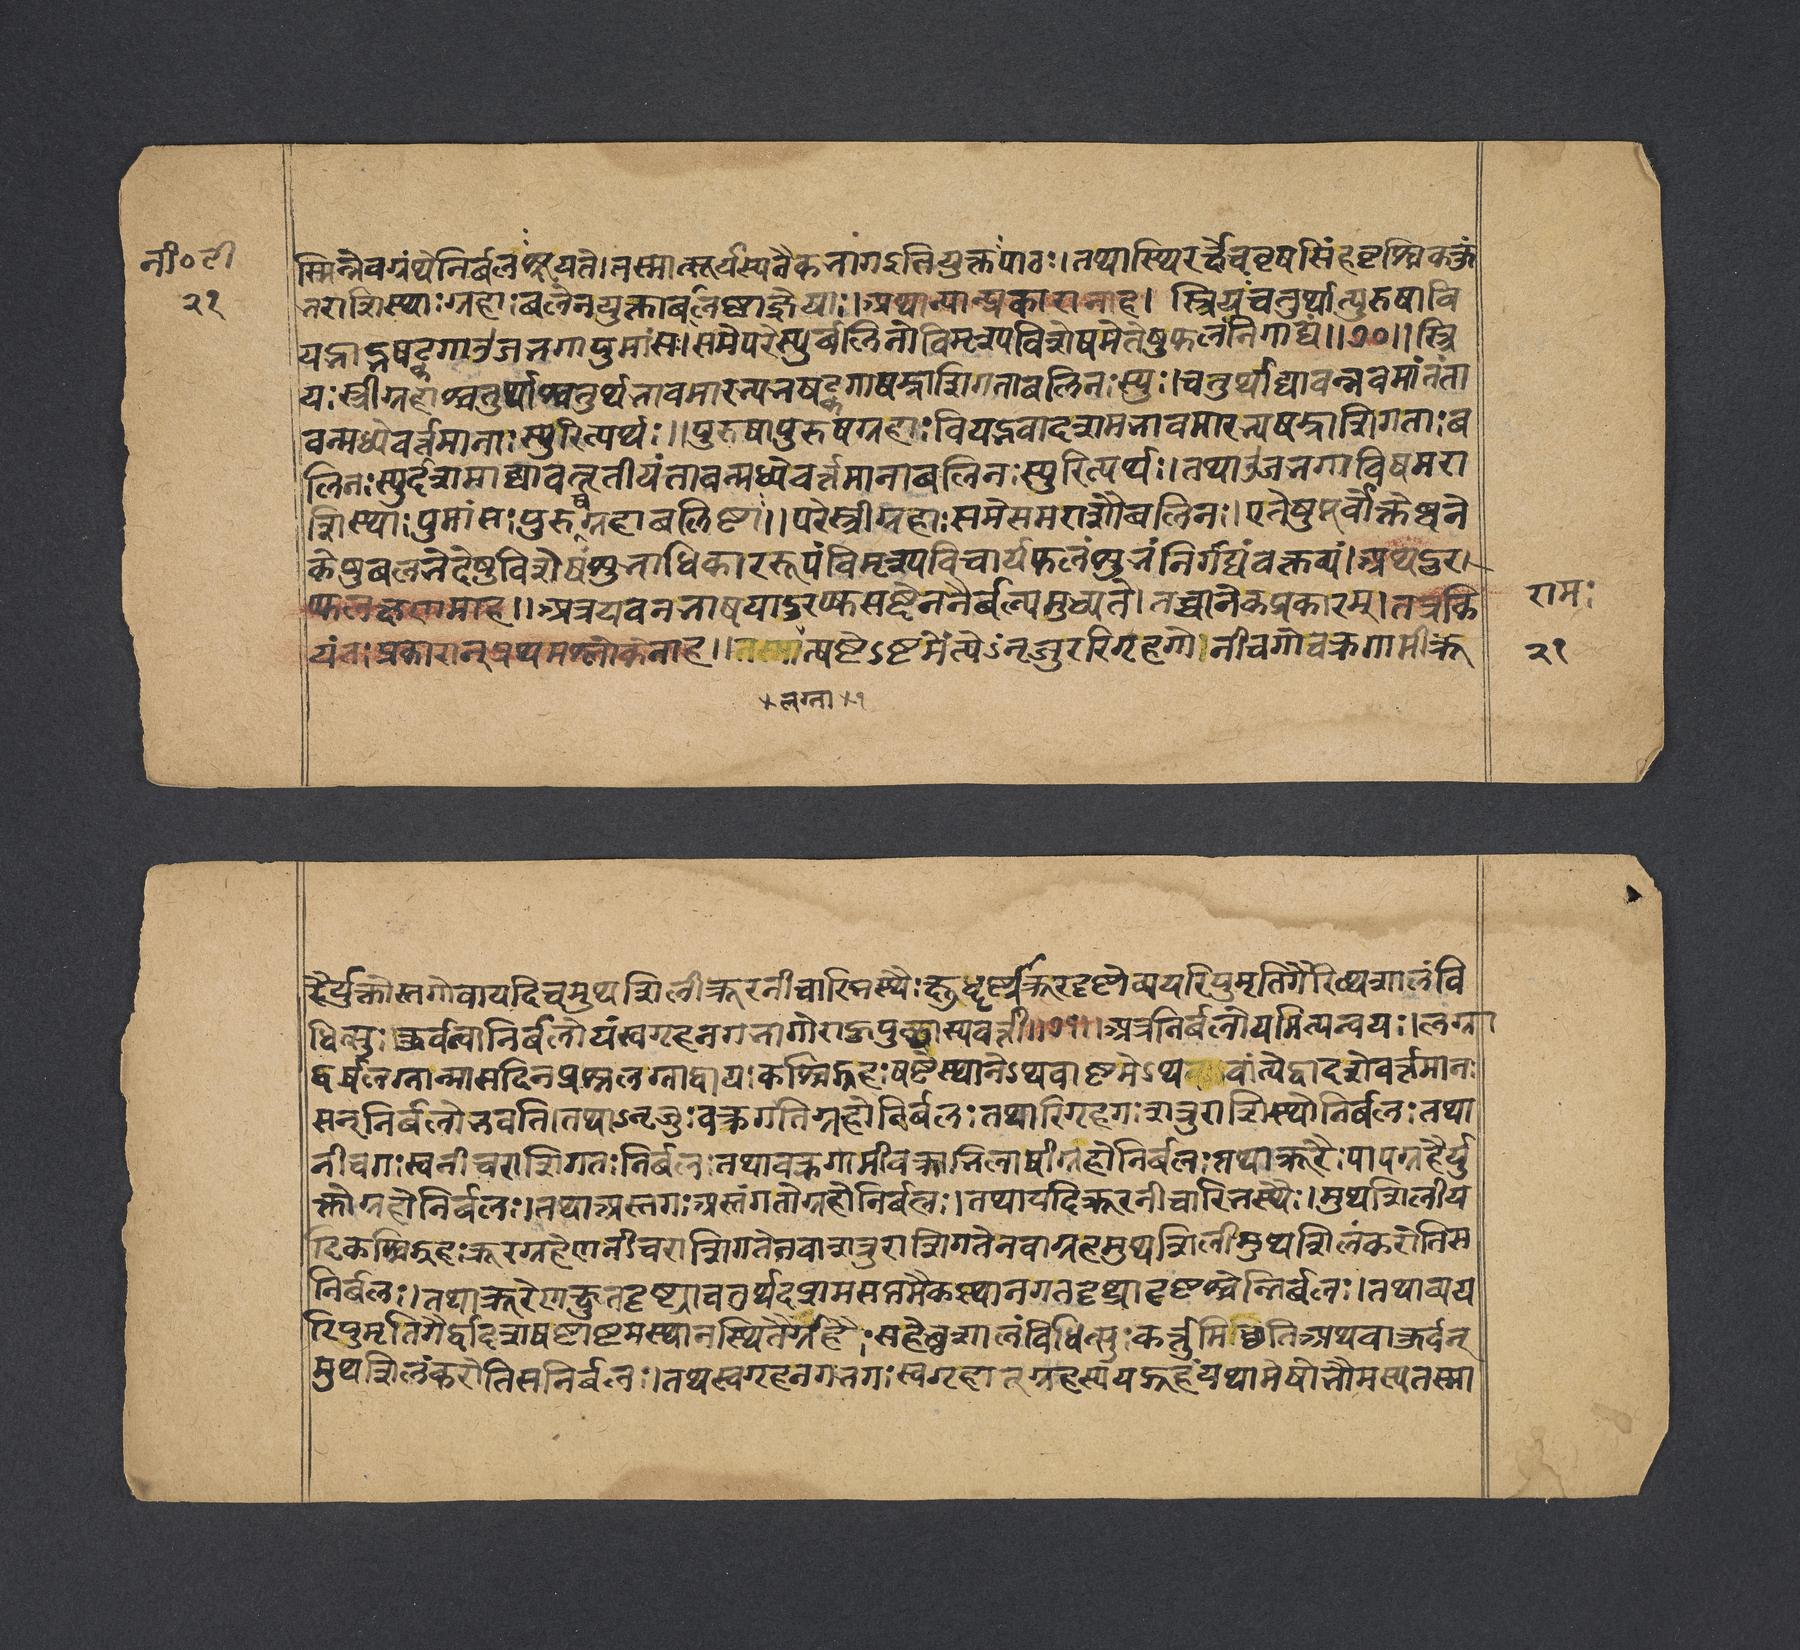 नी॰टी
२१
स्मिन्नेवग्रंथेनिर्बलःश्रूयते।तस्मात्सूर्यस्यनैकनागइतियुक्तःपाठः।तथास्थिरर्क्षेचवृषसिंहवृश्चिककुंभ
नराशिस्थाःग्रहाःबलेनयुक्ताबलिष्टाज्ञेयाः।अथान्यान्प्रकारानाह। स्त्रियंचतुर्थात्पुरुषावि
यद्भाद्भषट्कगाओजनगापुमांसः।समेपरेस्युर्बलिनोविमृश्यविशेषमेतेषुफलंनिगाद्यं॥७०॥स्त्रि
यःस्त्रीग्रहाश्चतुर्थाच्चतुर्थभावमारभ्यभषट्कगाषड्भाशिगताबलिनःस्युः।चतुर्थाद्यावन्नवमांतंता
वन्मध्येवर्त्तमानाःस्युरित्यर्थः॥पुरुषापुरुषग्रहाःवियद्भवादशमभावमारभ्यषड्भाशिगताःब
लिनःस्युर्दशमाद्यावत्तृतीयंतावन्मध्येवर्त्तमानाबलिनःस्युरित्यर्थः।तथाओजनगाविषमरा
शिस्थाःपुमांसःपुरुषग्रहाबलिष्टाः॥परेस्त्रीग्रहाःसमेसमराशौबलिनः।एतेषुपूर्वोक्तेष्वने
केषुबलभेदेषुविशेषंशुभाधिकाररूपंविमृश्यविचार्यफलंशुभंनिर्गाद्यंवक्तव्यं।अथदुर
प्फलक्षणमाह॥अत्रयवनभाषयादुरप्फशब्देननैर्बल्यमुच्यते।तच्चानेकप्रकारम्।तत्रकि
यंतःप्रकारान्प्रथमश्लोकेनाह॥लग्नात्षष्टेऽष्टमेंत्येऽनृजुररिगृहगो।नीचगोवक्रगामीक्रू
लग्ना
रामः
२१
रैर्युक्तोस्तगोवायदिचमुथशिलीक्रूरनीचारिभस्थैः।क्रूरदृष्टोव्ययरिपुमृतिगैरित्थशालंवि
धित्सुः।कुर्वन्वानिर्बलोयंस्वगृहनगभागोराहुपुच्छास्यवर्त्ती॥७१॥अत्रनिर्बलोयमित्यन्वयः।लग्ना
द्वर्षलग्नान्मासदिनप्रश्नलग्नाद्वायःकश्चिद्ग्रहःषष्टेस्थानेऽथवाष्टमेऽथवांत्येद्वादशेवर्त्तमानः
सन्निर्बलोभवति।तथाऽनृजुःवक्रगतिग्रहोनिर्बलःतथारिगृहगःशत्रुराशिस्थोनिर्बलःतथा
नीचगःस्वनीचराशिगतःनिर्बलःतथावक्रगामीवक्राभिलाषीग्रहोनिर्बलःतथाक्रूरैःपापग्रहैर्यु
क्तोग्रहोनिर्बलः।तथाअस्तगःअस्तंगतोग्रहोनिर्बलः।तथायदिक्रूरनीचारिभस्थैः।मुथशिलीय
दिकश्चिद्ग्रहःक्रूरग्रहेणनीचराशिगतेनवाशत्रुराशिगतेनवाग्रहमुथशिलीमुथशिलंकरोतिस
निर्बलः।तथाक्रूरेणक्षुतदृष्ट्याचतुर्थदशमसप्तमैकस्थानगतदृष्ट्यादृष्टश्चेन्निर्बलः।तथाव्यय
रिपुमृतिगैर्द्वादशषष्टाष्टमस्थानस्थितैर्ग्रहैः।सहेत्थशालंविधित्सुःकर्त्तुमिच्छतिअथवाकुर्वन्
मुथशिलंकरोतिसनिर्बलः।तथस्वगृहनगभगःस्वगृहात्ग्रहस्ययद्गृहंयथामेषोभौमस्यतस्मा